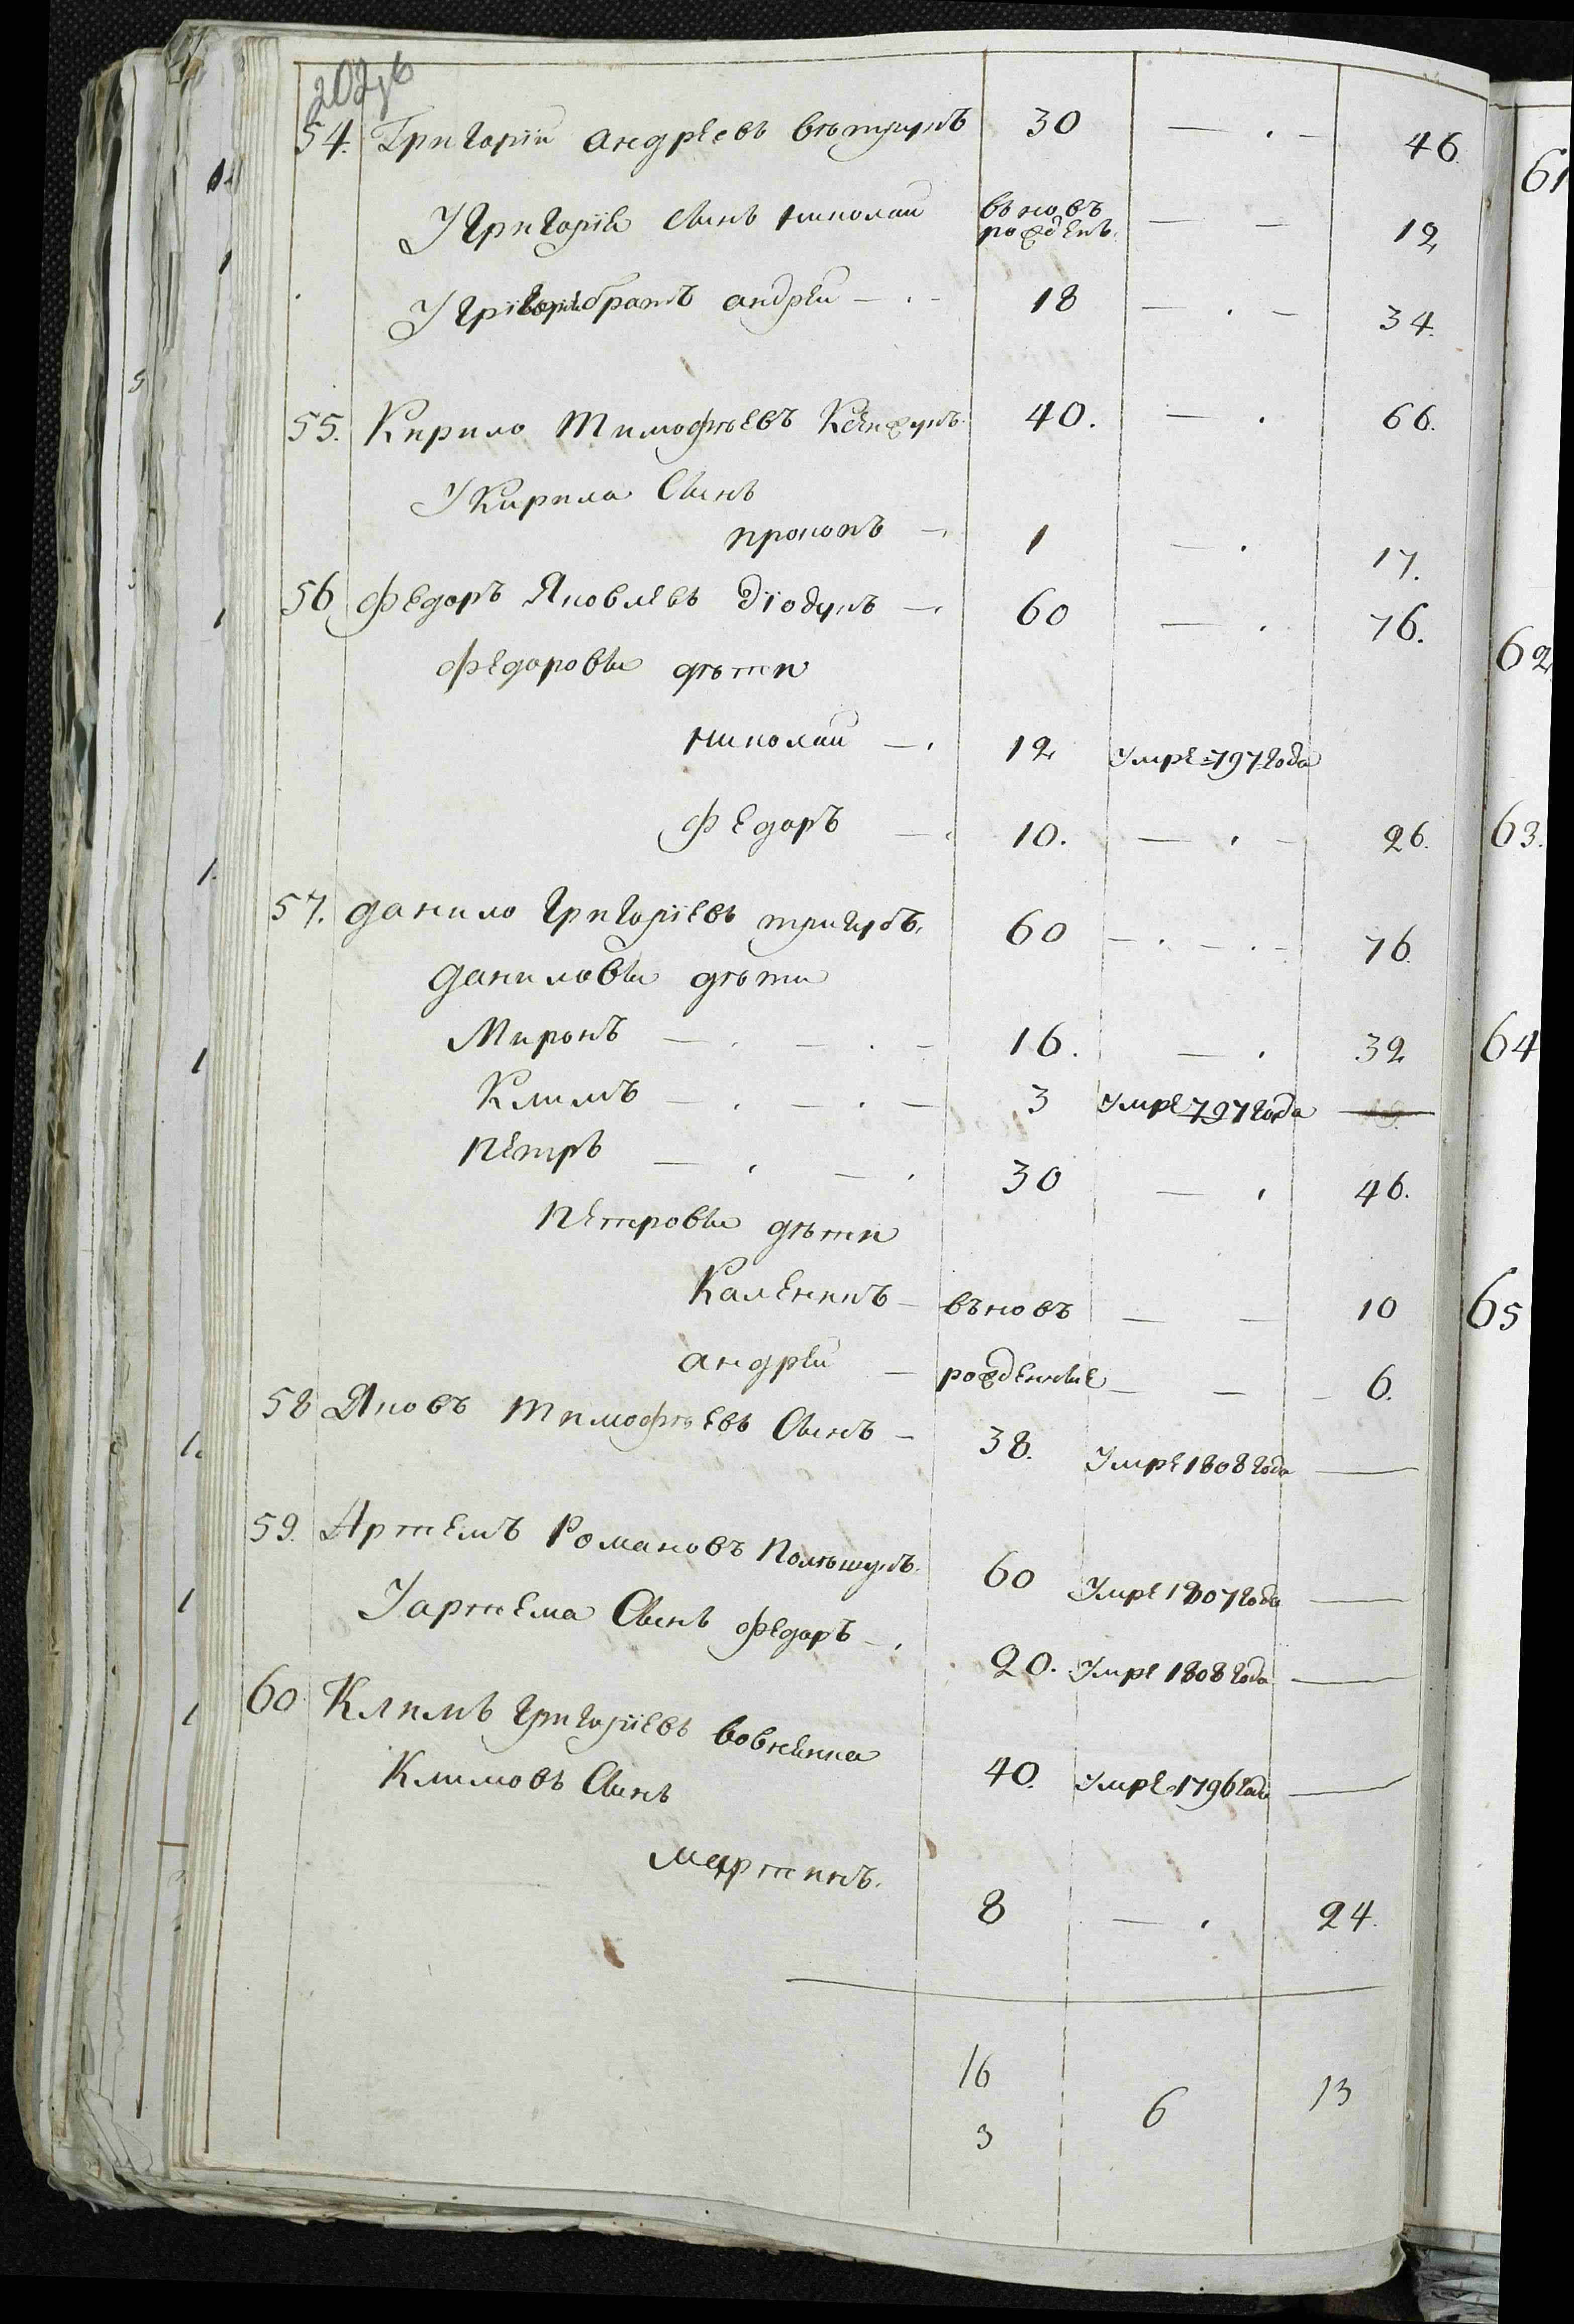 202об
54. Григорій андреевъ вътрукъ 30 — . – 46.
У Григорія Сынъ николай въновъ рожденъ. — – 12
У Григорія братъ андрей — . – 18 — . – 34.
55. Кирило Тимофѣевъ 40. — . 66.
У Кирила Сынъ
прокопъ – . 1 — . 17.
56 федоръ Яковлевъ Дїодукъ – . 60 — . 76.
федоровы дѣти
николай – . 12 Умре 797 года
федоръ – . 10. — . – 26.
57. данило григорїевъ тригубъ. 60 – . – . – 76.
даниловы дѣти
Миронъ — . — . – 16. — . 32
Климъ — . — . – 3 Умре 797 года —
петръ — . — . 30 — . 46.
петровы дѣти
Каленикъ – въновъ — — 10
андрей – рожденные – – – 6.
58 Яковъ тимофѣевъ Сынъ – 38. Умре 1808 года —
59. Артемъ Романовъ полѣшукъ. 60 Умре 1807 года —
У артема Сынъ федоръ – . 20. Умре 1808 года —
60. Климъ григорїевъ вовненка 40. Умре 1796 года —
Климовъ Сынъ
мартинъ. 8 — . 24.
16 6 13
3
61
62
63.
64
65